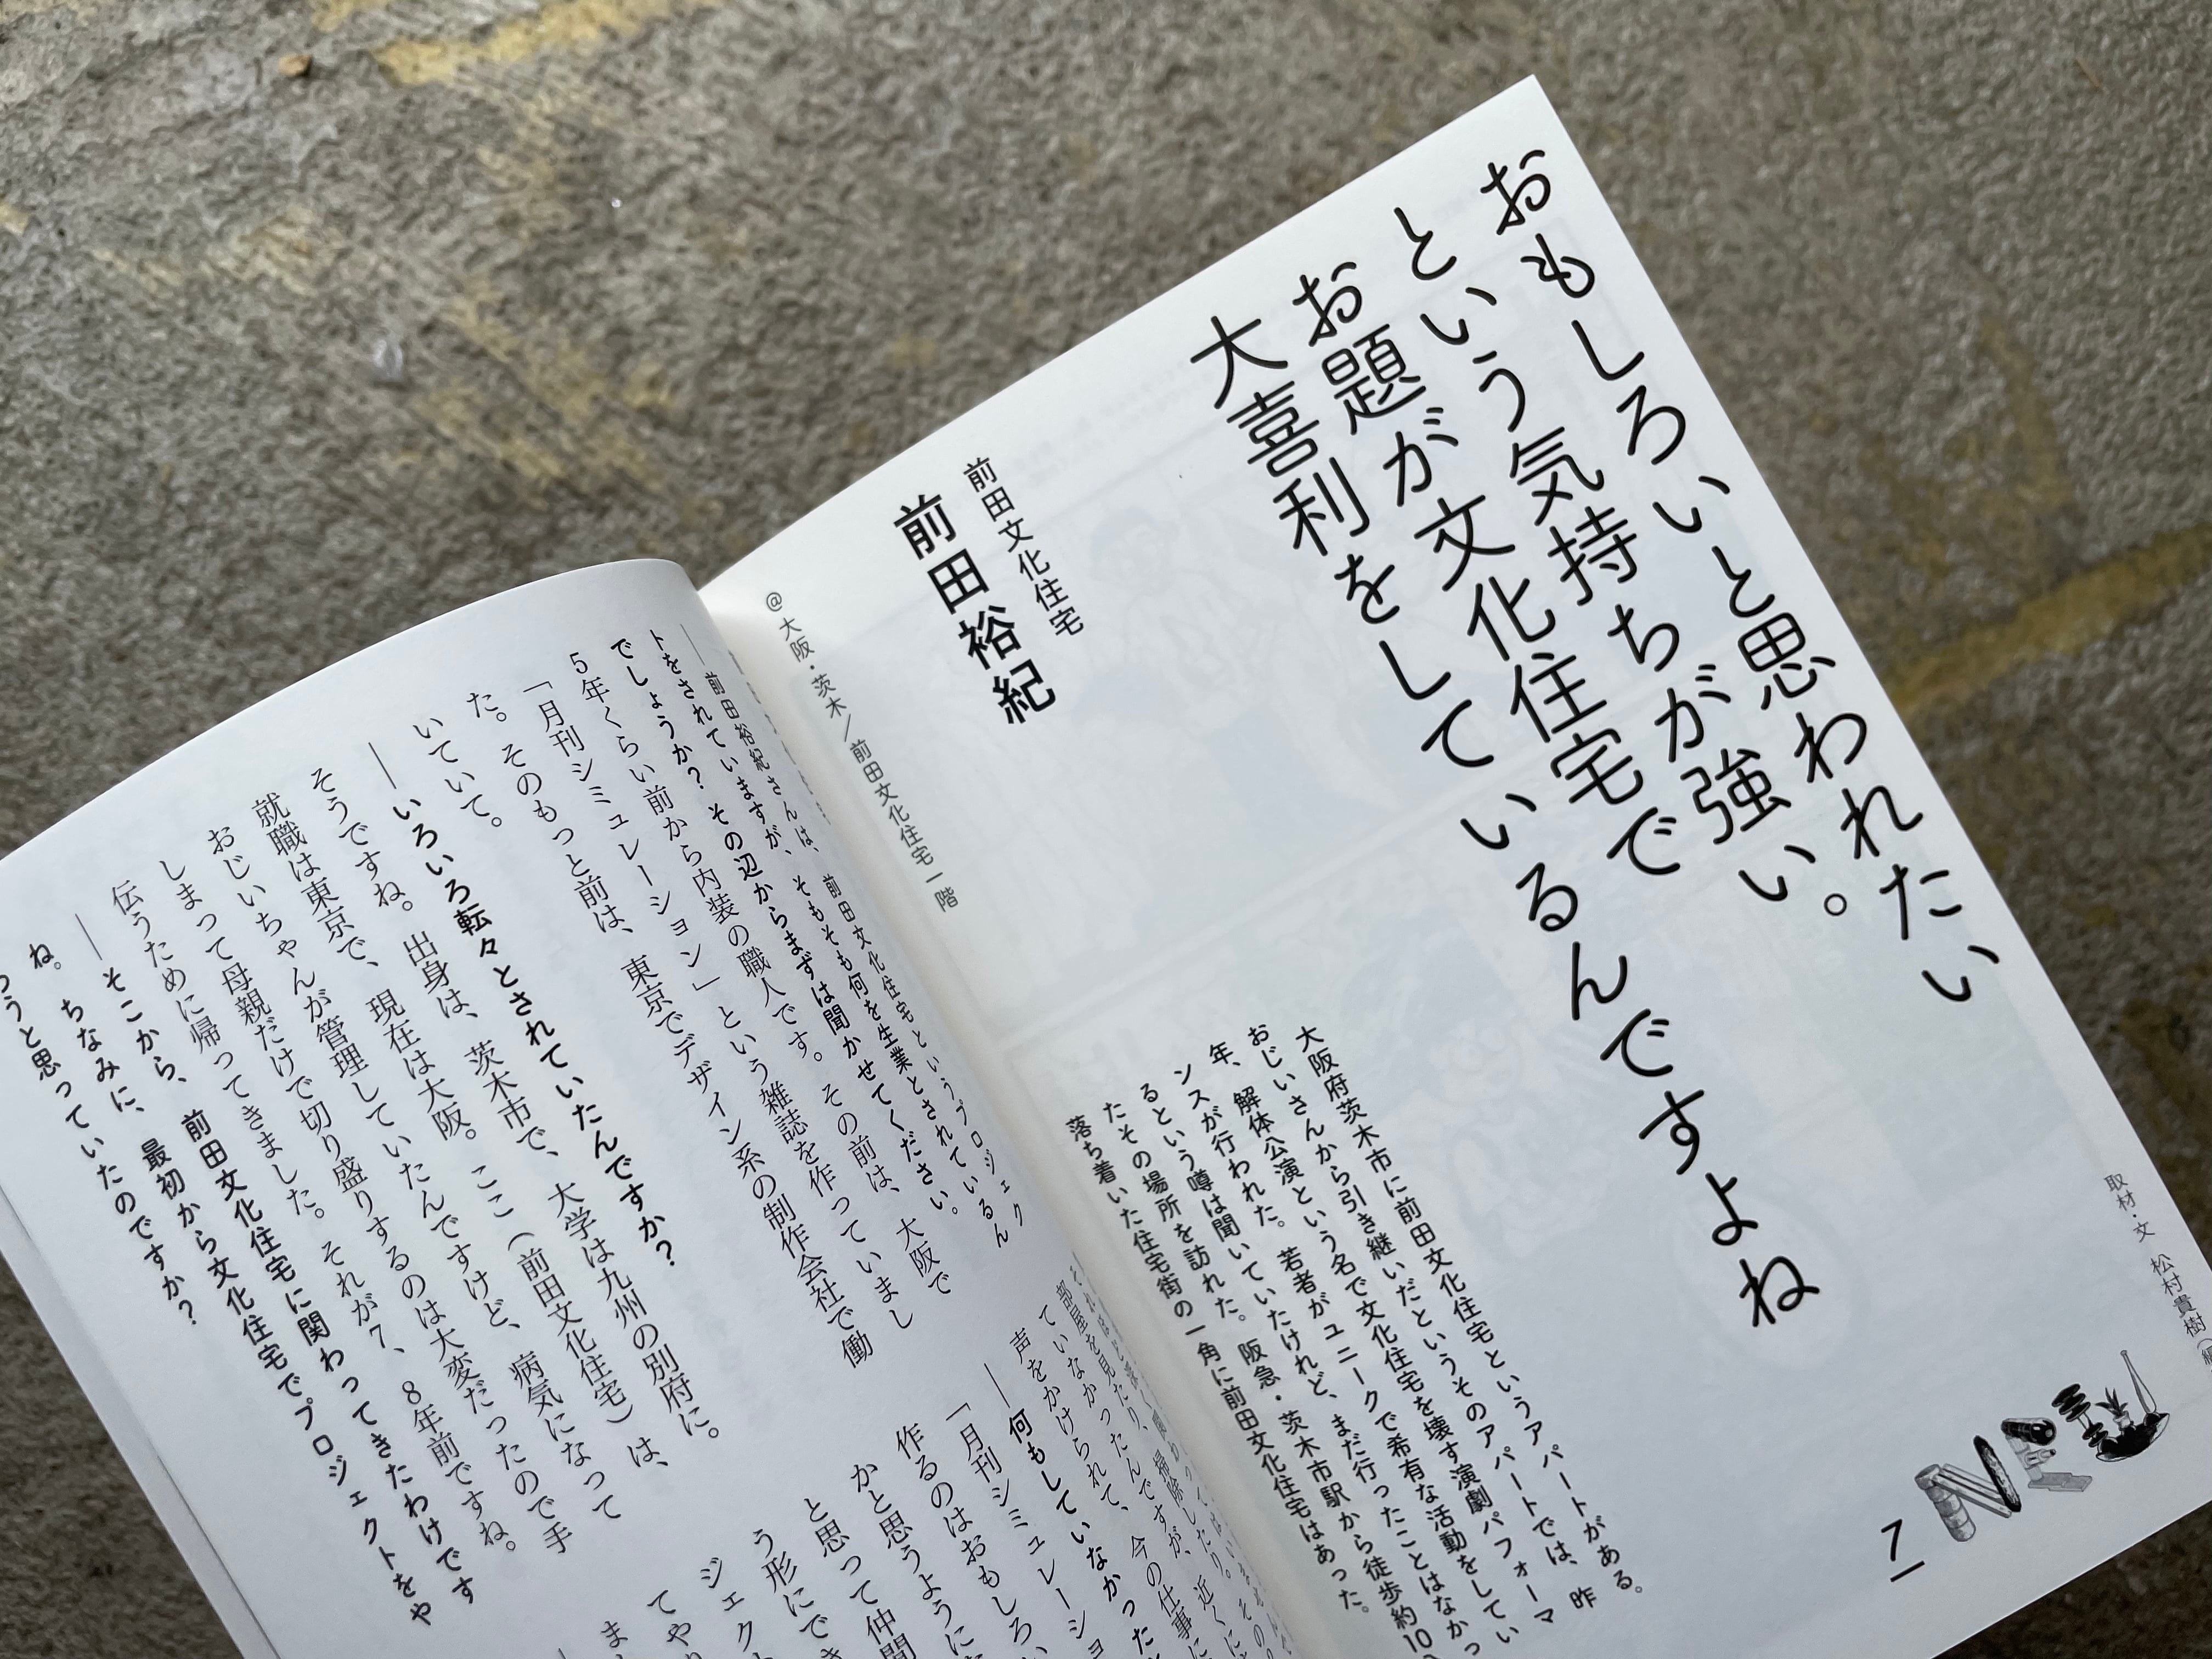 おもしろいと思われたい
という気持ちが強い。
お題が文化住宅で
大喜利をしているんですよね
前田文化住宅
前田裕紀
@大阪・茨木／前田文化住宅一階
取材・文　松村貴樹
大阪府茨木市に前田文化住宅というアパートがある。
おじいさんから引き継いだというそのアパートでは、昨
年、解体公演という名で文化住宅を壊す演劇パフォーマ
ンスが行われた。若者がユニークで希有な活動をしてい
るという噂は聞いていたけれど、まだ行ったことはなかっ
たその場所を訪れた。阪急・茨木市駅から徒歩約10
落ち着いた住宅街の一角に前田文化住宅はあった。
――前田裕紀さんは、前田文化住宅というプロジェク
トをされていますが、そもそも何を生業とされているん
でしょうか？その辺からまずは聞かせてください。
5年くらい前から内装の職人です。その前は、大阪で
「月刊シミュレーション」という雑誌を作っていまし
た。そのもっと前は、東京でデザイン系の制作会社で働
いていて。
――いろいろ転々とされていたんですか？
そうですね。出身は、茨木市で、大学は九州の別府に。
就職は東京で、現在は大阪。ここ（前田文化住宅）は、
おじいちゃんが管理していたんですけど、病気になって
しまって母親だけで切り盛りするのは大変だったので手
伝うために帰ってきました。それが7、8年前ですね。
――そこから、前田文化住宅に関わってきたわけです
ね。ちなみに、最初から文化住宅でプロジェクトをや
ろうと思っていたのですか？
部屋を見たり、掃除したり。近くに
ていなかったんですが、今の仕事に
声をかけられて、
――何もしていなかった
「月刊シミュレーショ
作るのはおもしろい
かと思うように
と思って仲間
う形にでき
ジェクト
てやり
ま
7